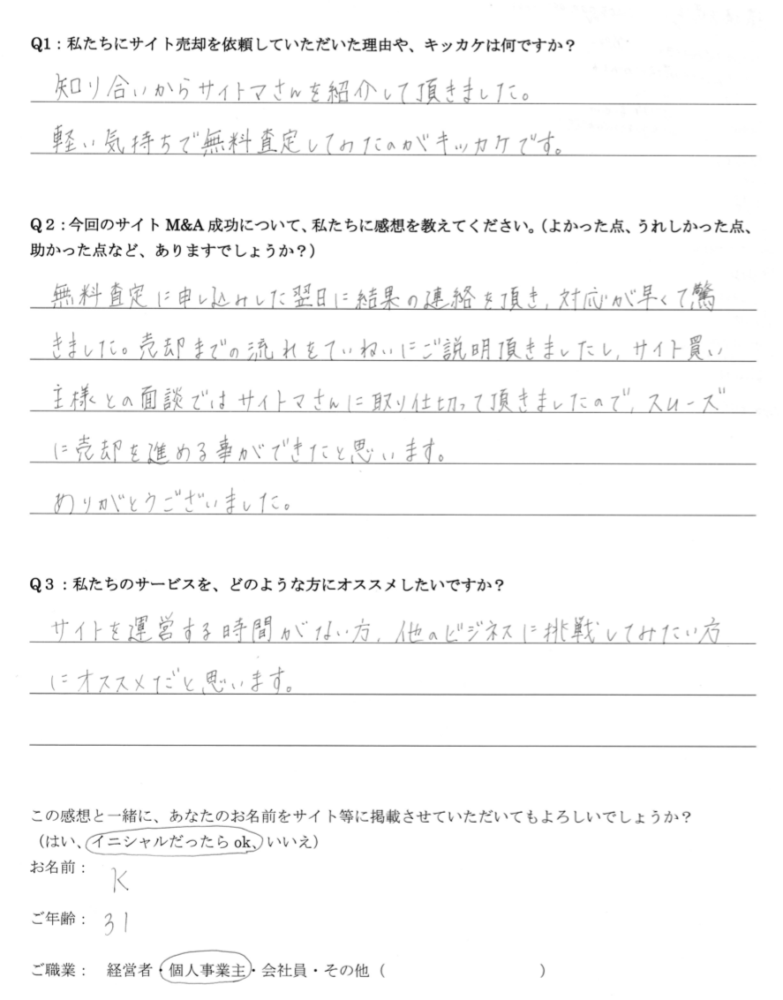 Q1：私たちにサイト売却を依頼していただいた理由や、キッカケは何ですか？
知り合いからサイトマさんを紹介して頂きました。
軽い気持ちで無料査定してみたのがキッカケです。
Q２：今回のサイト M&A 成功について、私たちに感想を教えてください。（よかった点、うれしかった点、
助かった点など、ありますでしょうか？）
無料査定に申し込みした翌日に結果の連絡を頂き、対応が早くて驚
きました。売却までの流れをていねいにご説明頂きましたし、サイト買い
主様との面談ではサイトマさんに取り仕切って頂きましたので、スムーズ
に売却を進める事ができたと思います。
ありがとうございました。
Q３：私たちのサービスを、どのような方にオススメしたいですか？
サイトを運営する時間がない方、他のビジネスに挑戦してみたい方
にオススメだと思います。
この感想と一緒に、あなたのお名前をサイト等に掲載させていただいてもよろしいでしょうか？
（はい、イニシャルだったら ok、いいえ）
お名前： K
ご年齢： 31
ご職業： 経営者・個人事業主・会社員・その他（ ）